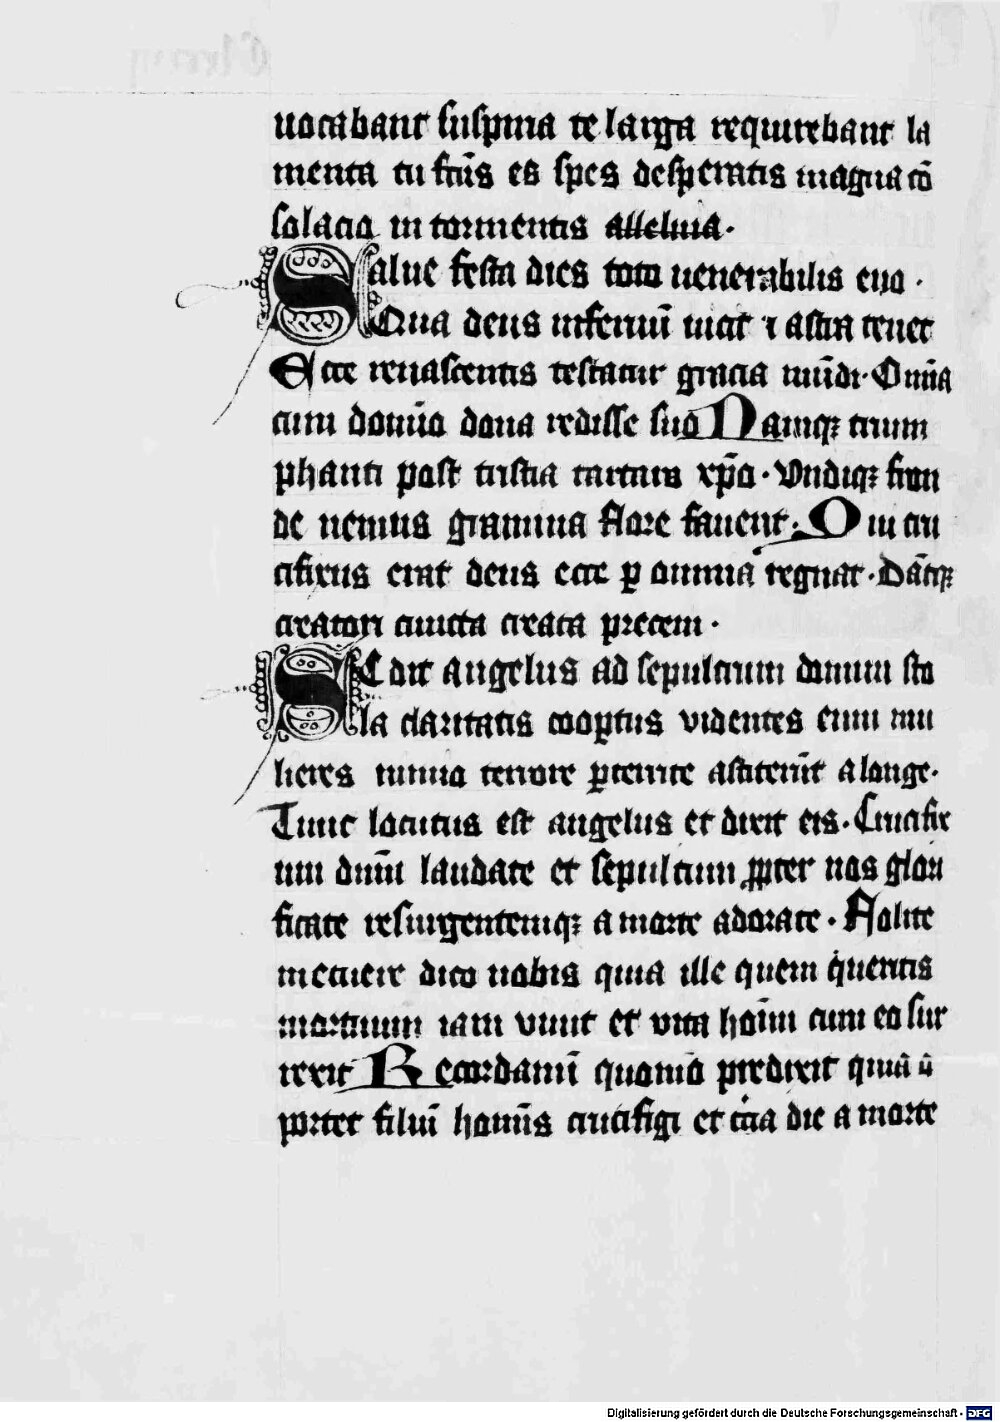 uocabant suspiria te larga requirebant la
menta tu fctūs es spes desperatis magna cō
solacio in tormentis alleluia.
Salue festa dies toto uenerabilis euo ·
Qua deus infernū uicit ⁊ astra tenet
Ecce renascentis testatur gracia mūdi · Omīa
cum domīo dona redisse suo Namqꝫ trium
phanti post tristia tartara xp̄o · Vndiqꝫ fron
de nemus gramina flore fauent · Qui cru
cifixus erat deus ecce ꝑ omnia regnat · Dātqꝫ
creatori cuncta creata precem ·
Sedit angelus ad sepulcrum domini sto
la claritatis cooꝑtus videntes eum mu
lieres nimio terrore ꝑterrite astiterūt a longe ·
Tunc locutus est angelus et dixit eis · Crucifix
um dnm̄ laudate et sepultum ꝓpter nos glori
ficate resurgentemqꝫ a morte adorate · Nolite
metuere dico uobis quia ille quem queritis
mortuum iam viuit et vita hoīm cum eo sur
rexit Recordamī quomō predixit quia o
portet filiū homīs crucifigi et tc̄ia die a morte
Digitalisierung gefördert durch die Deutsche Forschungsgemeinschaft - DFG